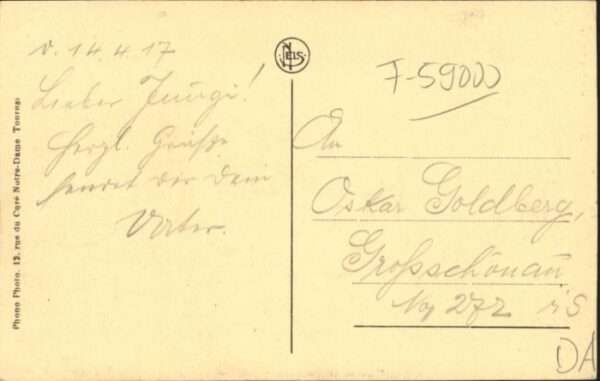 Phono Photo. 12, rue du Curé Notre-Dame Tourng.
v. 14.4.17
Lieber Junge!
Herzl. Grüße
sendet dir Dein
Vater.
NELS.
F-59000
An
Oskar Goldberg,
Großschönau
No 272 i S
DA